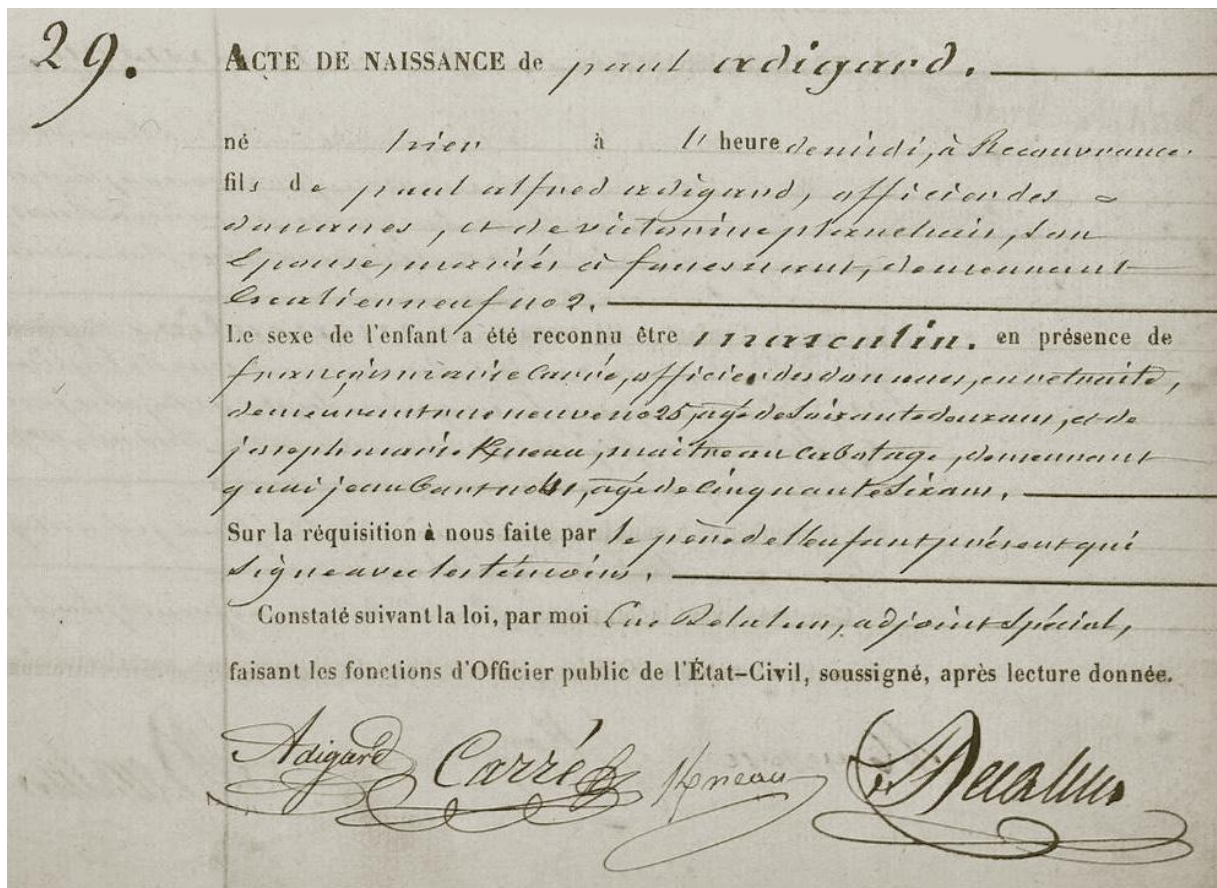 29. ACTE DE NAISSANCE de paul adigard.
né hier à l' heure de midi, à Recouvrance.
fils de paul alfred adigard, officier des
douanes, et de victorine planchais, son
épouse, mariés à fouesnant, demeurant
Escalier neuf no 2.
Le sexe de l'enfant a été reconnu être masculin. en présence de
françois marie Carré, officier des douanes, en retraite,
demeurant rue neuve no 25, âgé de soixante douze ans, et de
joseph marie Kneau, maître au cabotage, demeurant
quai jean bart no 41, âgé de cinquante six ans.
Sur la réquisition à nous faite par le père de l'enfant présent qui
signe avec les témoins.
Constaté suivant la loi, par moi adjoint spécial,
faisant les fonctions d'Officier public de l'État-Civil, soussigné, après lecture donnée.
Adigard Carré Kneau